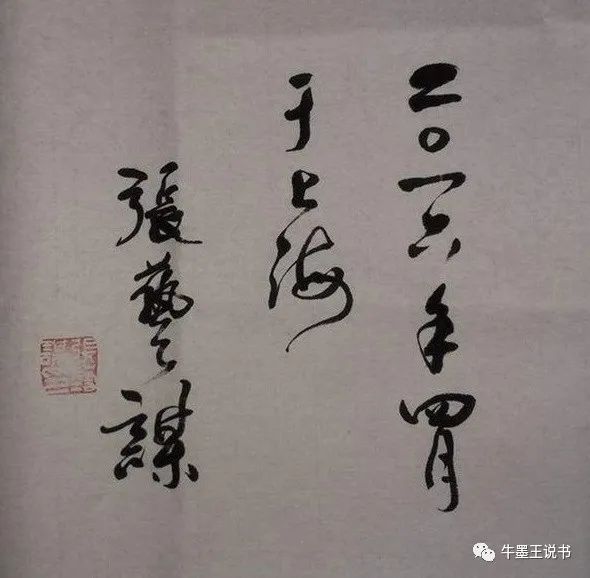 二〇一六年四月
于上海
張藝謀
牛墨王说书